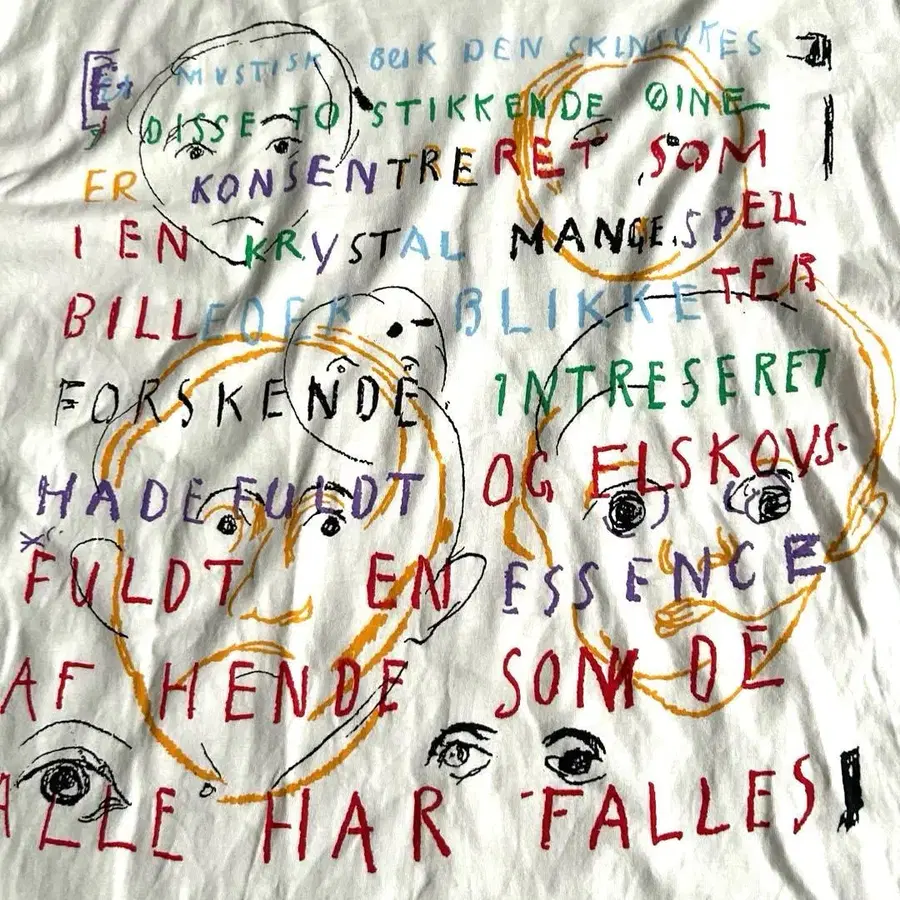 Et MYSTISK BLIK DEN SKINSYKES
I DISSE TO STIKKENDE ØINE
ER KONSENTRERET SOM
I EN KRYSTAL MANGE SPEIL
BILLEDER BLIKKETER
FORSKENDE INTRESERET
HADEFULDT OG ELSKOVS-
FULDT EN ESSENCE
AF HENDE SOM DE
ALLE HAR FALLES